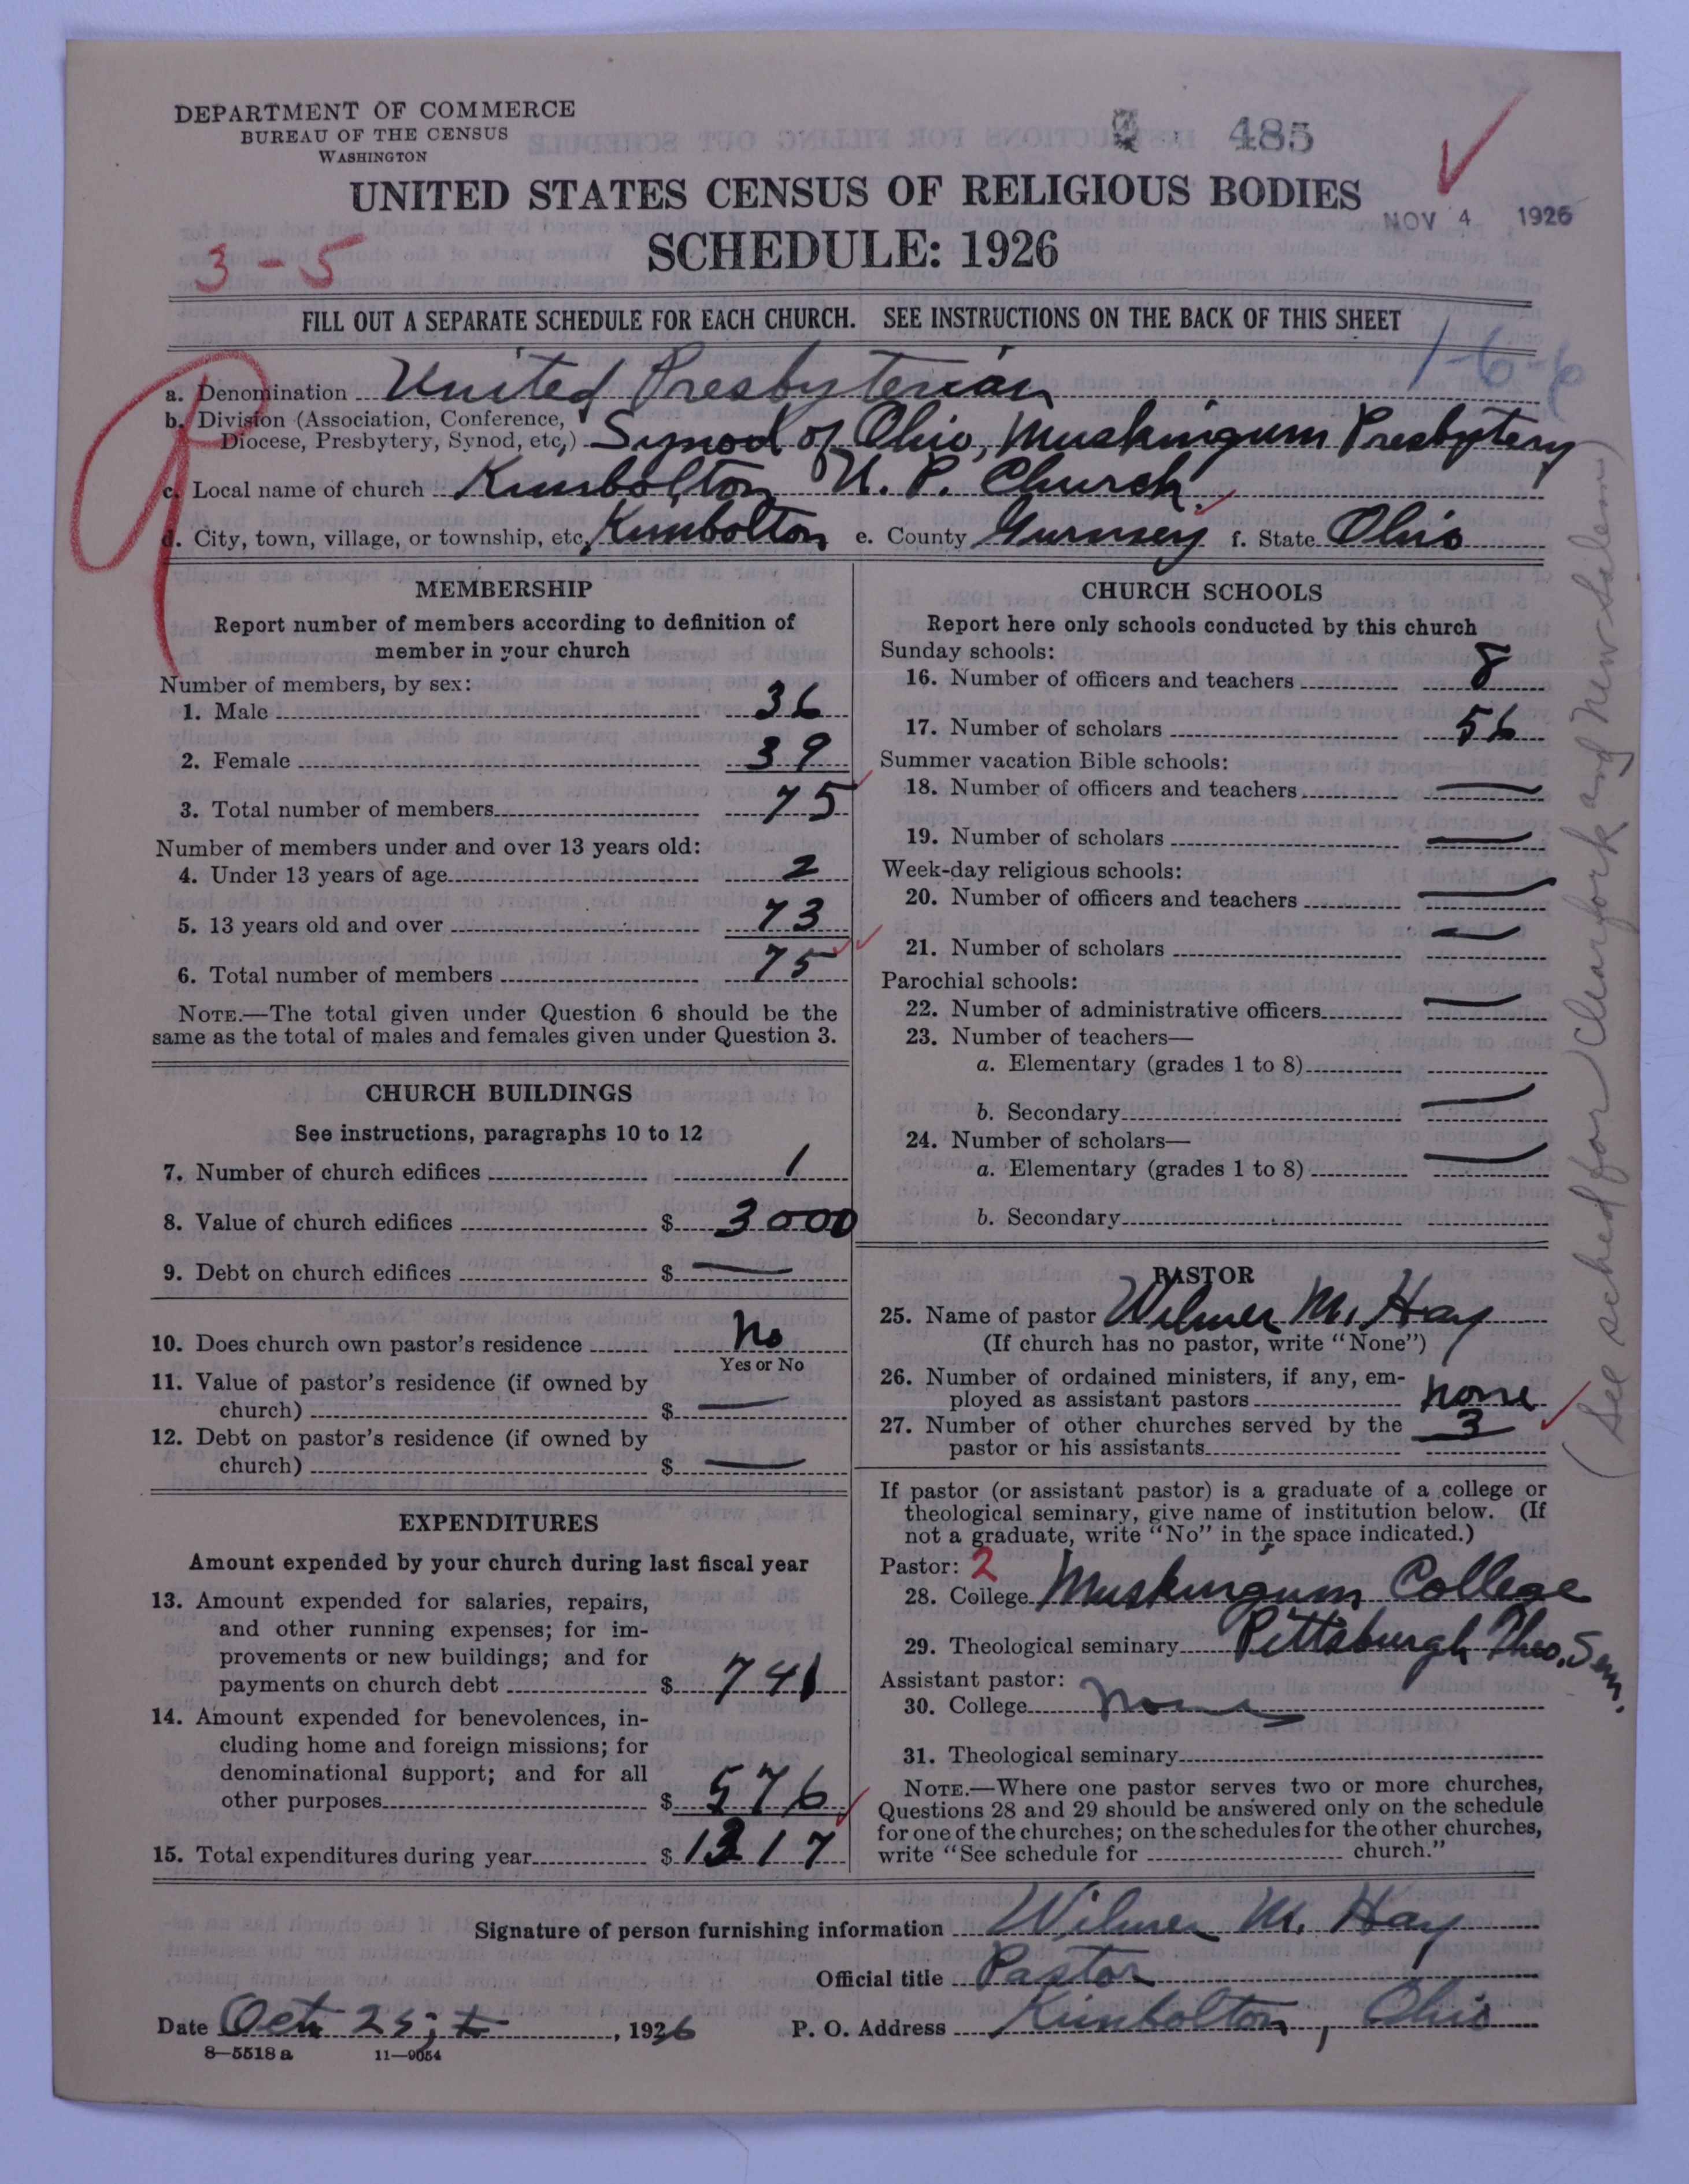 DEPARTMENT OF COMMERCE
BUREAU OF THE CENSUS
WASHINGTON
485
UNITED STATES CENSUS OF RELIGIOUS BODIES
NOV 4 1926
SCHEDULE: 1926
3-5
FILL OUT A SEPARATE SCHEDULE FOR EACH CHURCH. SEE INSTRUCTIONS ON THE BACK OF THIS SHEET
1-6-6
a. Denomination United Presbyterian
b. Division (Association, Conference,
Diocese, Presbytery, Synod, etc.) Synod of Ohio, Muskingum Presbytery
c. Local name of church Kimbolton U. P. Church.
d. City, town, village, or township, etc. Kimbolton e. County Gurnsey f. State Ohio
MEMBERSHIP
Report number of members according to definition of
member in your church
Number of members, by sex:
1. Male 36
2. Female 39
3. Total number of members 75
Number of members under and over 13 years old:
4. Under 13 years of age 2
5. 13 years old and over 73
6. Total number of members 75
NOTE.—The total given under Question 6 should be the
same as the total of males and females given under Question 3.
CHURCH BUILDINGS
See instructions, paragraphs 10 to 12
7. Number of church edifices 1
8. Value of church edifices $ 3000
9. Debt on church edifices $ —
10. Does church own pastor's residence No
Yes or No
11. Value of pastor's residence (if owned by
church) $ —
12. Debt on pastor's residence (if owned by
church) $ —
EXPENDITURES
Amount expended by your church during last fiscal year
13. Amount expended for salaries, repairs,
and other running expenses; for im-
provements or new buildings; and for
payments on church debt $ 741
14. Amount expended for benevolences, in-
cluding home and foreign missions; for
denominational support; and for all
other purposes $ 576
15. Total expenditures during year $ 1317
CHURCH SCHOOLS
Report here only schools conducted by this church
Sunday schools:
16. Number of officers and teachers 8
17. Number of scholars 56
Summer vacation Bible schools:
18. Number of officers and teachers —
19. Number of scholars —
Week-day religious schools:
20. Number of officers and teachers —
21. Number of scholars —
Parochial schools:
22. Number of administrative officers —
23. Number of teachers—
a. Elementary (grades 1 to 8)
b. Secondary —
24. Number of scholars—
a. Elementary (grades 1 to 8) —
b. Secondary
PASTOR
25. Name of pastor Wilmer M. Hay
(If church has no pastor, write "None")
26. Number of ordained ministers, if any, em-
ployed as assistant pastors none
27. Number of other churches served by the
pastor or his assistants 3
If pastor (or assistant pastor) is a graduate of a college or
theological seminary, give name of institution below. (If
not a graduate, write "No" in the space indicated.)
Pastor: 2
28. College Muskingum College
29. Theological seminary Pittsburgh Theo. Sem.
Assistant pastor:
30. College None
31. Theological seminary
NOTE.—Where one pastor serves two or more churches,
Questions 28 and 29 should be answered only on the schedule
for one of the churches; on the schedules for the other churches,
write "See schedule for church."
(See sched for Clearfork and New Salem)
Signature of person furnishing information Wilmer M. Hay
Official title Pastor
Date Oct. 25, 1926 P. O. Address Kimbolton, Ohio
8—5518 a 11—9054